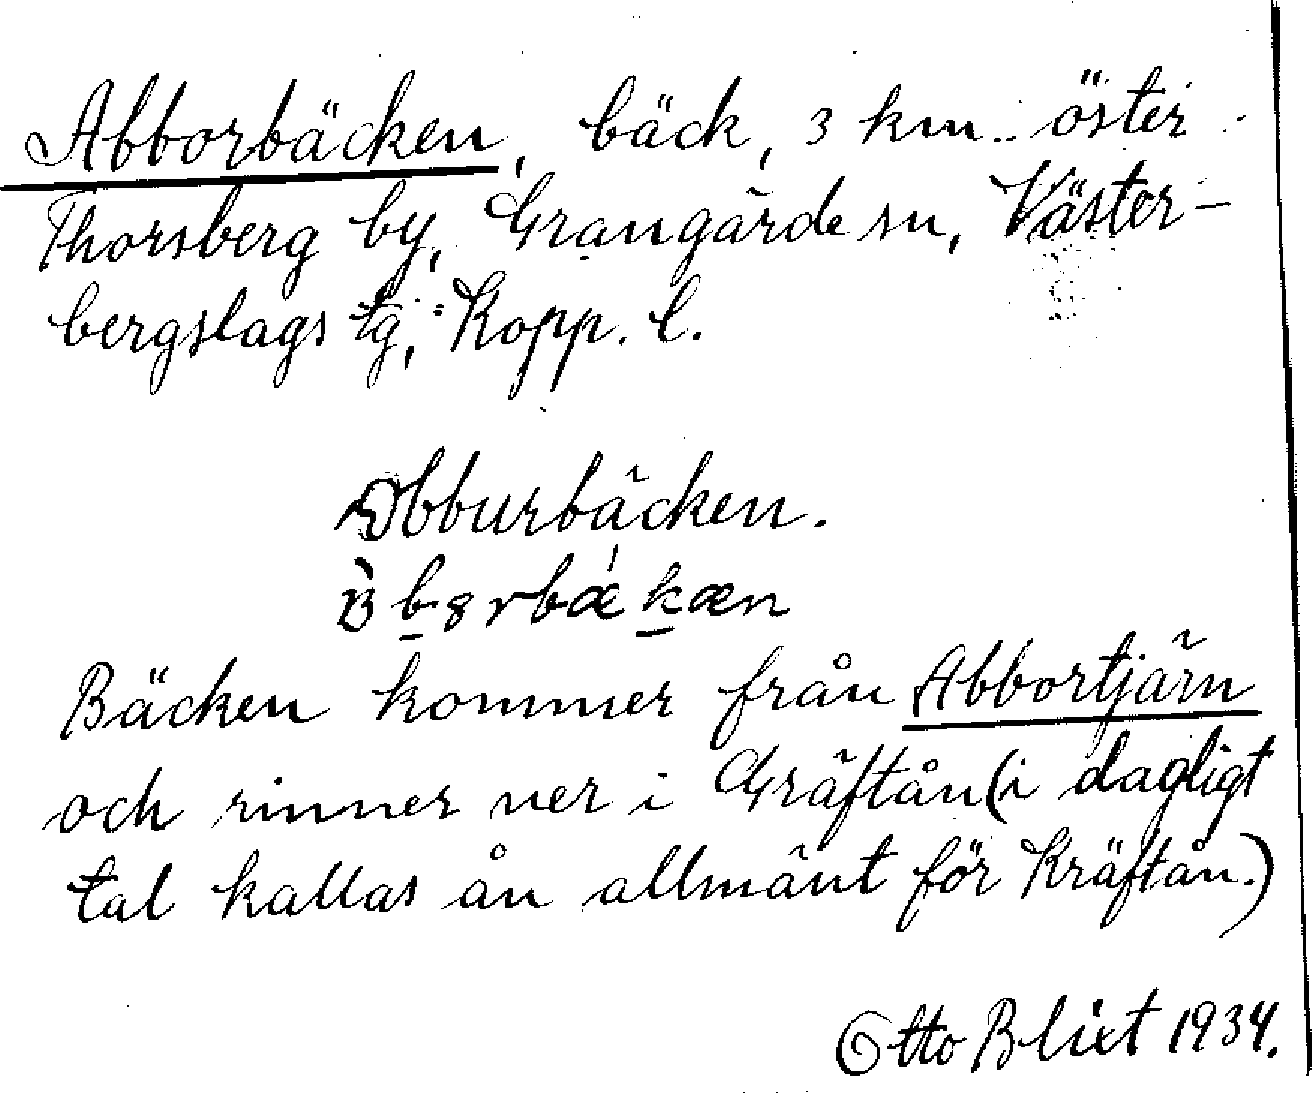 Abborbäcken, bäck, 3 km. öster
Thorsberg by, Grangärde sn, Väster-
bergslags tg, Kopp. l.
Obburbäcken.
Bäcken kommer från Abbortjärn
och rinner ner i Gräftån (i dagligt
tal kallas ån allmänt för Kräftån.)
Otto Blixt 1934.